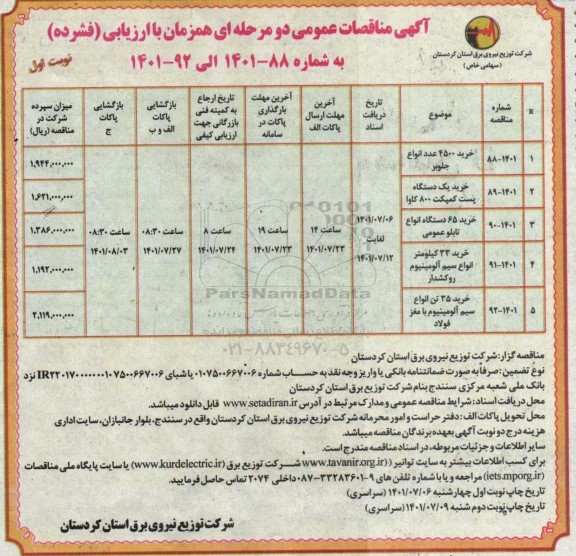 آگهی مناقصات عمومی دو مرحله ای همزمان با ارزیابی (فشرده)
به شماره ۸۸-۱۴۰۱ الی ۹۲-۱۴۰۱
نوبت اول
شرکت توزیع نیروی برق استان کردستان
(سهامی خاص)
R
شماره مناقصه
موضوع
تاریخ دریافت اسناد
آخرین مهلت ارسال پاکات الف
آخرین مهلت بارگذاری پاکات در سامانه
تاریخ ارجاع به کمیته فنی بازرگانی جهت ارزیابی کیفی
بازگشایی پاکات الف و ب
بازگشایی پاکات ج
میزان سپرده شرکت در مناقصه (ریال)
۱ ۸۸-۱۴۰۱ خرید ۴۵۰۰ عدد انواع جلوبر ۱,۹۴۴,۰۰۰,۰۰۰
۲ ۸۹-۱۴۰۱ خرید یک دستگاه پست کمپکت ۸۰۰ کاوا ۱,۶۲۱,۰۰۰,۰۰۰
۳ ۹۰-۱۴۰۱ خرید ۶۵ دستگاه انواع تابلو عمومی ۱,۳۸۶,۰۰۰,۰۰۰
۴ ۹۱-۱۴۰۱ خرید ۳۳ کیلومتر انواع سیم آلومینیوم روکشدار ۱,۱۹۲,۰۰۰,۰۰۰
۵ ۹۲-۱۴۰۱ خرید ۳۵ تن انواع سیم آلومینیوم با مغز فولاد ۲,۱۱۹,۰۰۰,۰۰۰
۱۴۰۱/۰۷/۰۶ لغایت ۱۴۰۱/۰۷/۱۲
ساعت ۱۴ ۱۴۰۱/۰۷/۲۳
ساعت ۱۹ ۱۴۰۱/۰۷/۲۳
ساعت ۸ ۱۴۰۱/۰۷/۲۴
ساعت ۰۸:۳۰ ۱۴۰۱/۰۷/۲۷
ساعت ۰۸:۳۰ ۱۴۰۱/۰۸/۰۳
ParsNamadData
۰۲۱-۸۸۳۴۹۶۷۰-۵
مناقصه گزار: شرکت توزیع نیروی برق استان کردستان
نوع تضمین: صرفاً به صورت ضمانتنامه بانکی یا واریز وجه نقد به حساب شماره ۰۱۰۷۵۰۰۶۶۷۰۰۶ یا شبای IR۲۲۰۱۷۰۰۰۰۰۰۰۱۰۷۵۰۰۶۶۷۰۰۶ نزد
بانک ملی شعبه مرکزی سنندج بنام شرکت توزیع نیروی برق استان کردستان
محل دریافت اسناد: شرایط مناقصه عمومی و مدارک مرتبط در آدرس www.setadiran.ir قابل دانلود میباشد.
محل تحویل پاکات الف: دفتر حراست و امور محرمانه شرکت توزیع نیروی برق استان کردستان واقع در سنندج، بلوار جانبازان، سایت اداری
هزینه درج دو نوبت آگهی بعهده برندگان مناقصه میباشد.
سایر اطلاعات و جزئیات مربوطه، در اسناد مناقصه مندرج است.
برای کسب اطلاعات بیشتر به سایت توانیر (www.tavanir.org.ir) شرکت توزیع برق (www.kurdelectric.ir) یا سایت پایگاه ملی مناقصات
(iets.mporg.ir) مراجعه و یا با شماره تلفن های ۹-۳۳۲۸۳۶۰۱-۰۸۷ داخلی ۲۰۷۴ تماس حاصل فرمایید.
تاریخ چاپ نوبت اول چهارشنبه ۱۴۰۱/۰۷/۰۶ (سراسری)
تاریخ چاپ نوبت دوم شنبه ۱۴۰۱/۰۷/۰۹ (سراسری)
شرکت توزیع نیروی برق استان کردستان